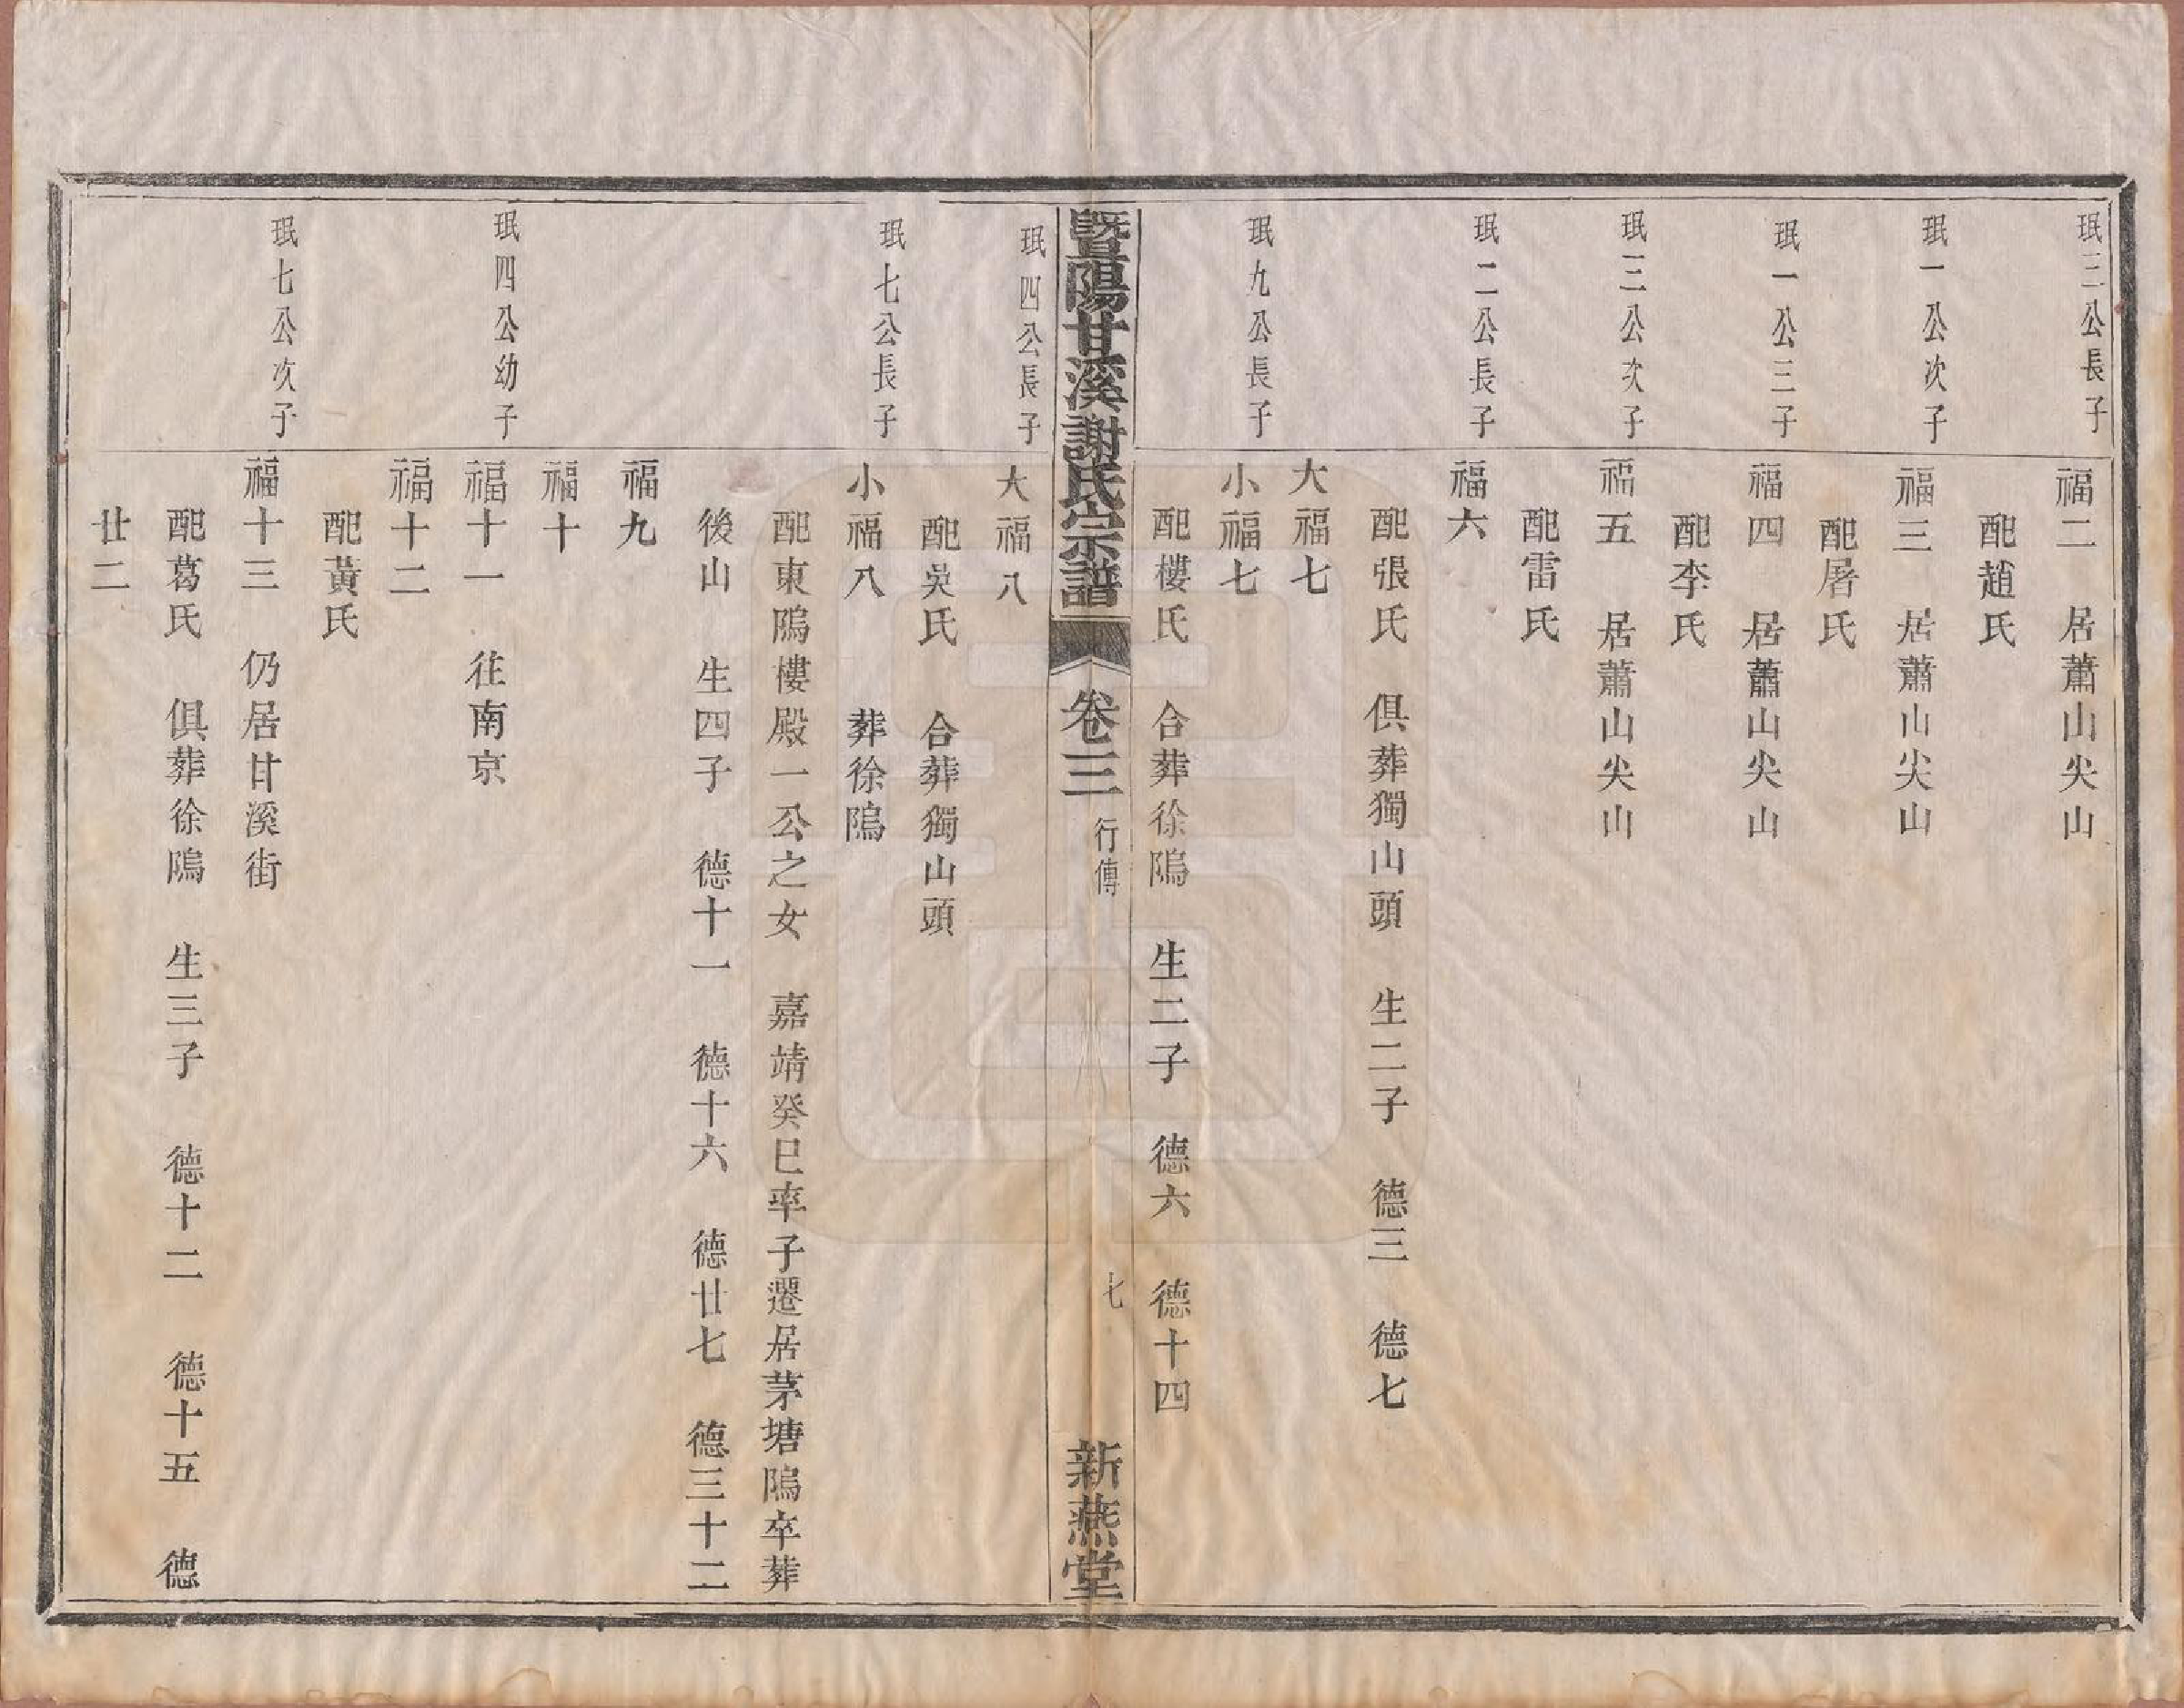 珉三公長子
福二　居蕭山尖山
配趙氏
珉一公次子
福三　居蕭山尖山
配屠氏
珉一公三子
福四　居蕭山尖山
配李氏
珉三公次子
福五　居蕭山尖山
配雷氏
珉二公長子
福六
配張氏　俱葬獨山頭　生二子　德三　德七
大福七
珉九公長子
小福七
配樓氏　合葬徐隝　生二子　德六　德十四
暨陽甘溪謝氏宗譜　卷三　行傳　七　新燕堂
珉四公長子
大福八
配吳氏　合葬獨山頭
珉七公長子
小福八　葬徐隝
配東隝樓殿一公之女　嘉靖癸巳率子遷居茅塘隝卒葬
後山　生四子　德十一　德十六　德廿七　德三十二
福九
福十
珉四公幼子
福十一　往南京
福十二
配黃氏
珉七公次子
福十三　仍居甘溪街
配葛氏　俱葬徐隝　生三子　德十二　德十五　德
廿二